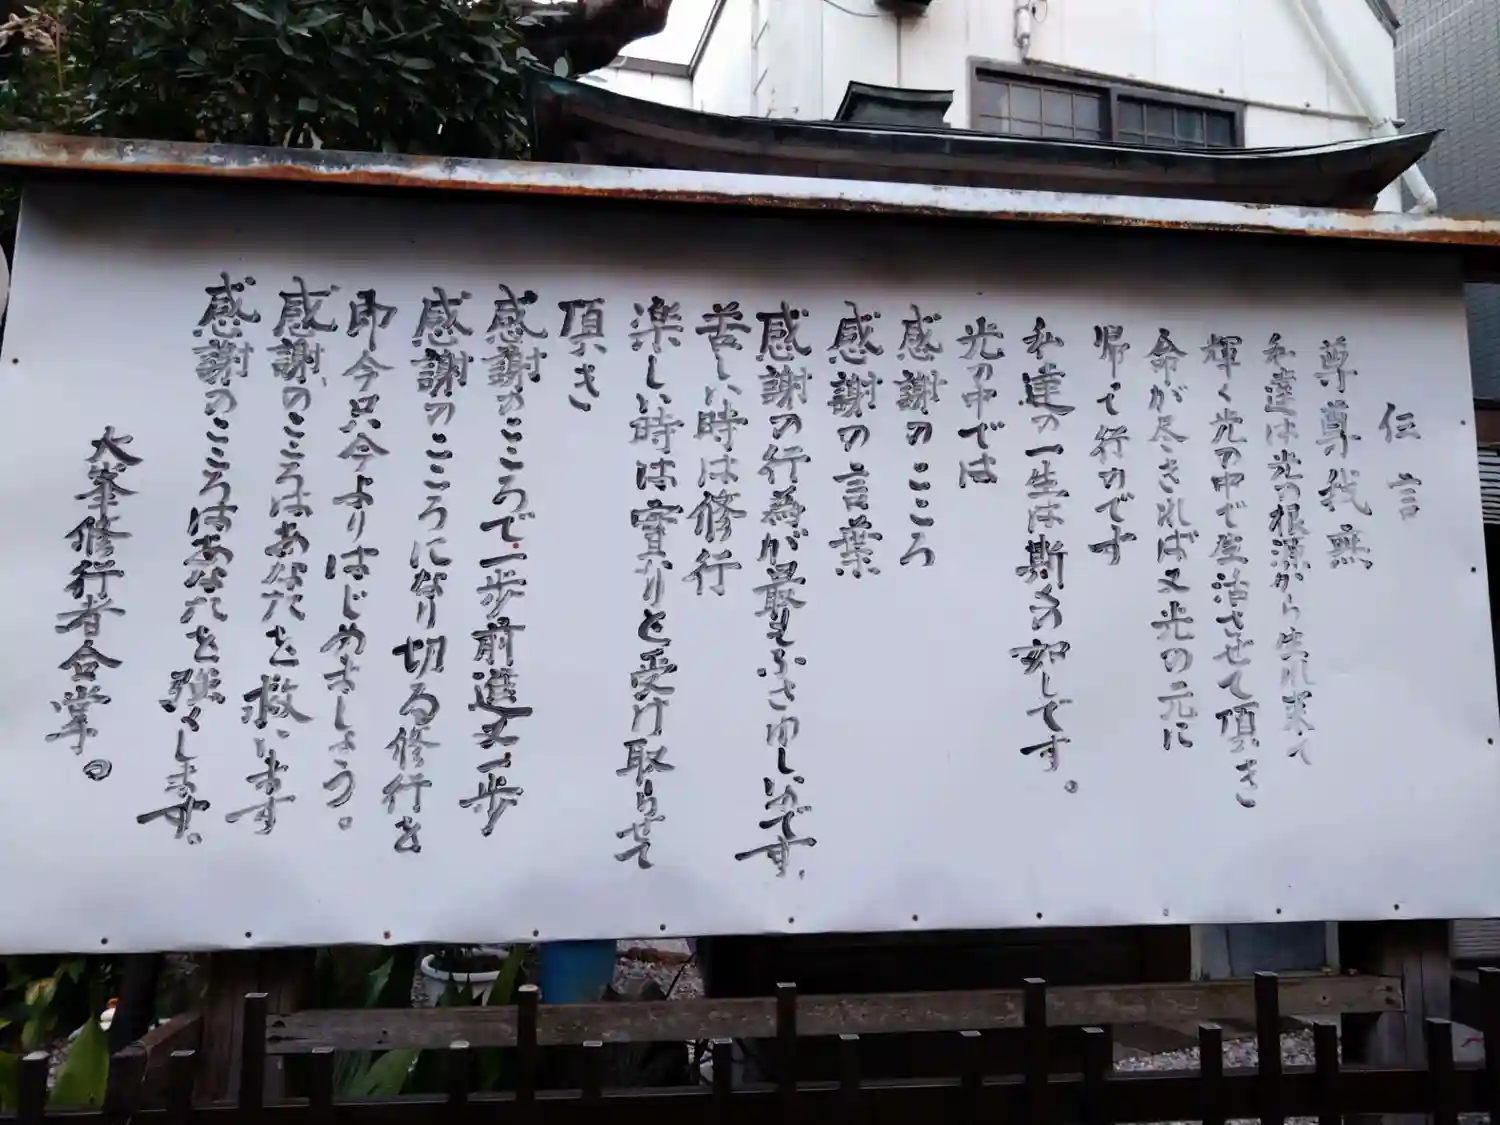 伝言
尊尊我無
私達は光の根源から生れ来て
輝く光の中で生活させて頂き
命が尽きれば又光の元に
帰て行のです
私達の一生は斯くの如しです。
光の中では
感謝のこころ
感謝の言葉
感謝の行為が最もふさわしいのです。
苦しい時は修行
楽しい時は実りと受け取らせて
頂き
感謝のこころで一歩前進又一歩
感謝のこころになり切る修行を
即今只今よりはじめましょう。
感謝のこころはあなたを救います
感謝のこころはあなたを強くします。
大峯修行者合掌。